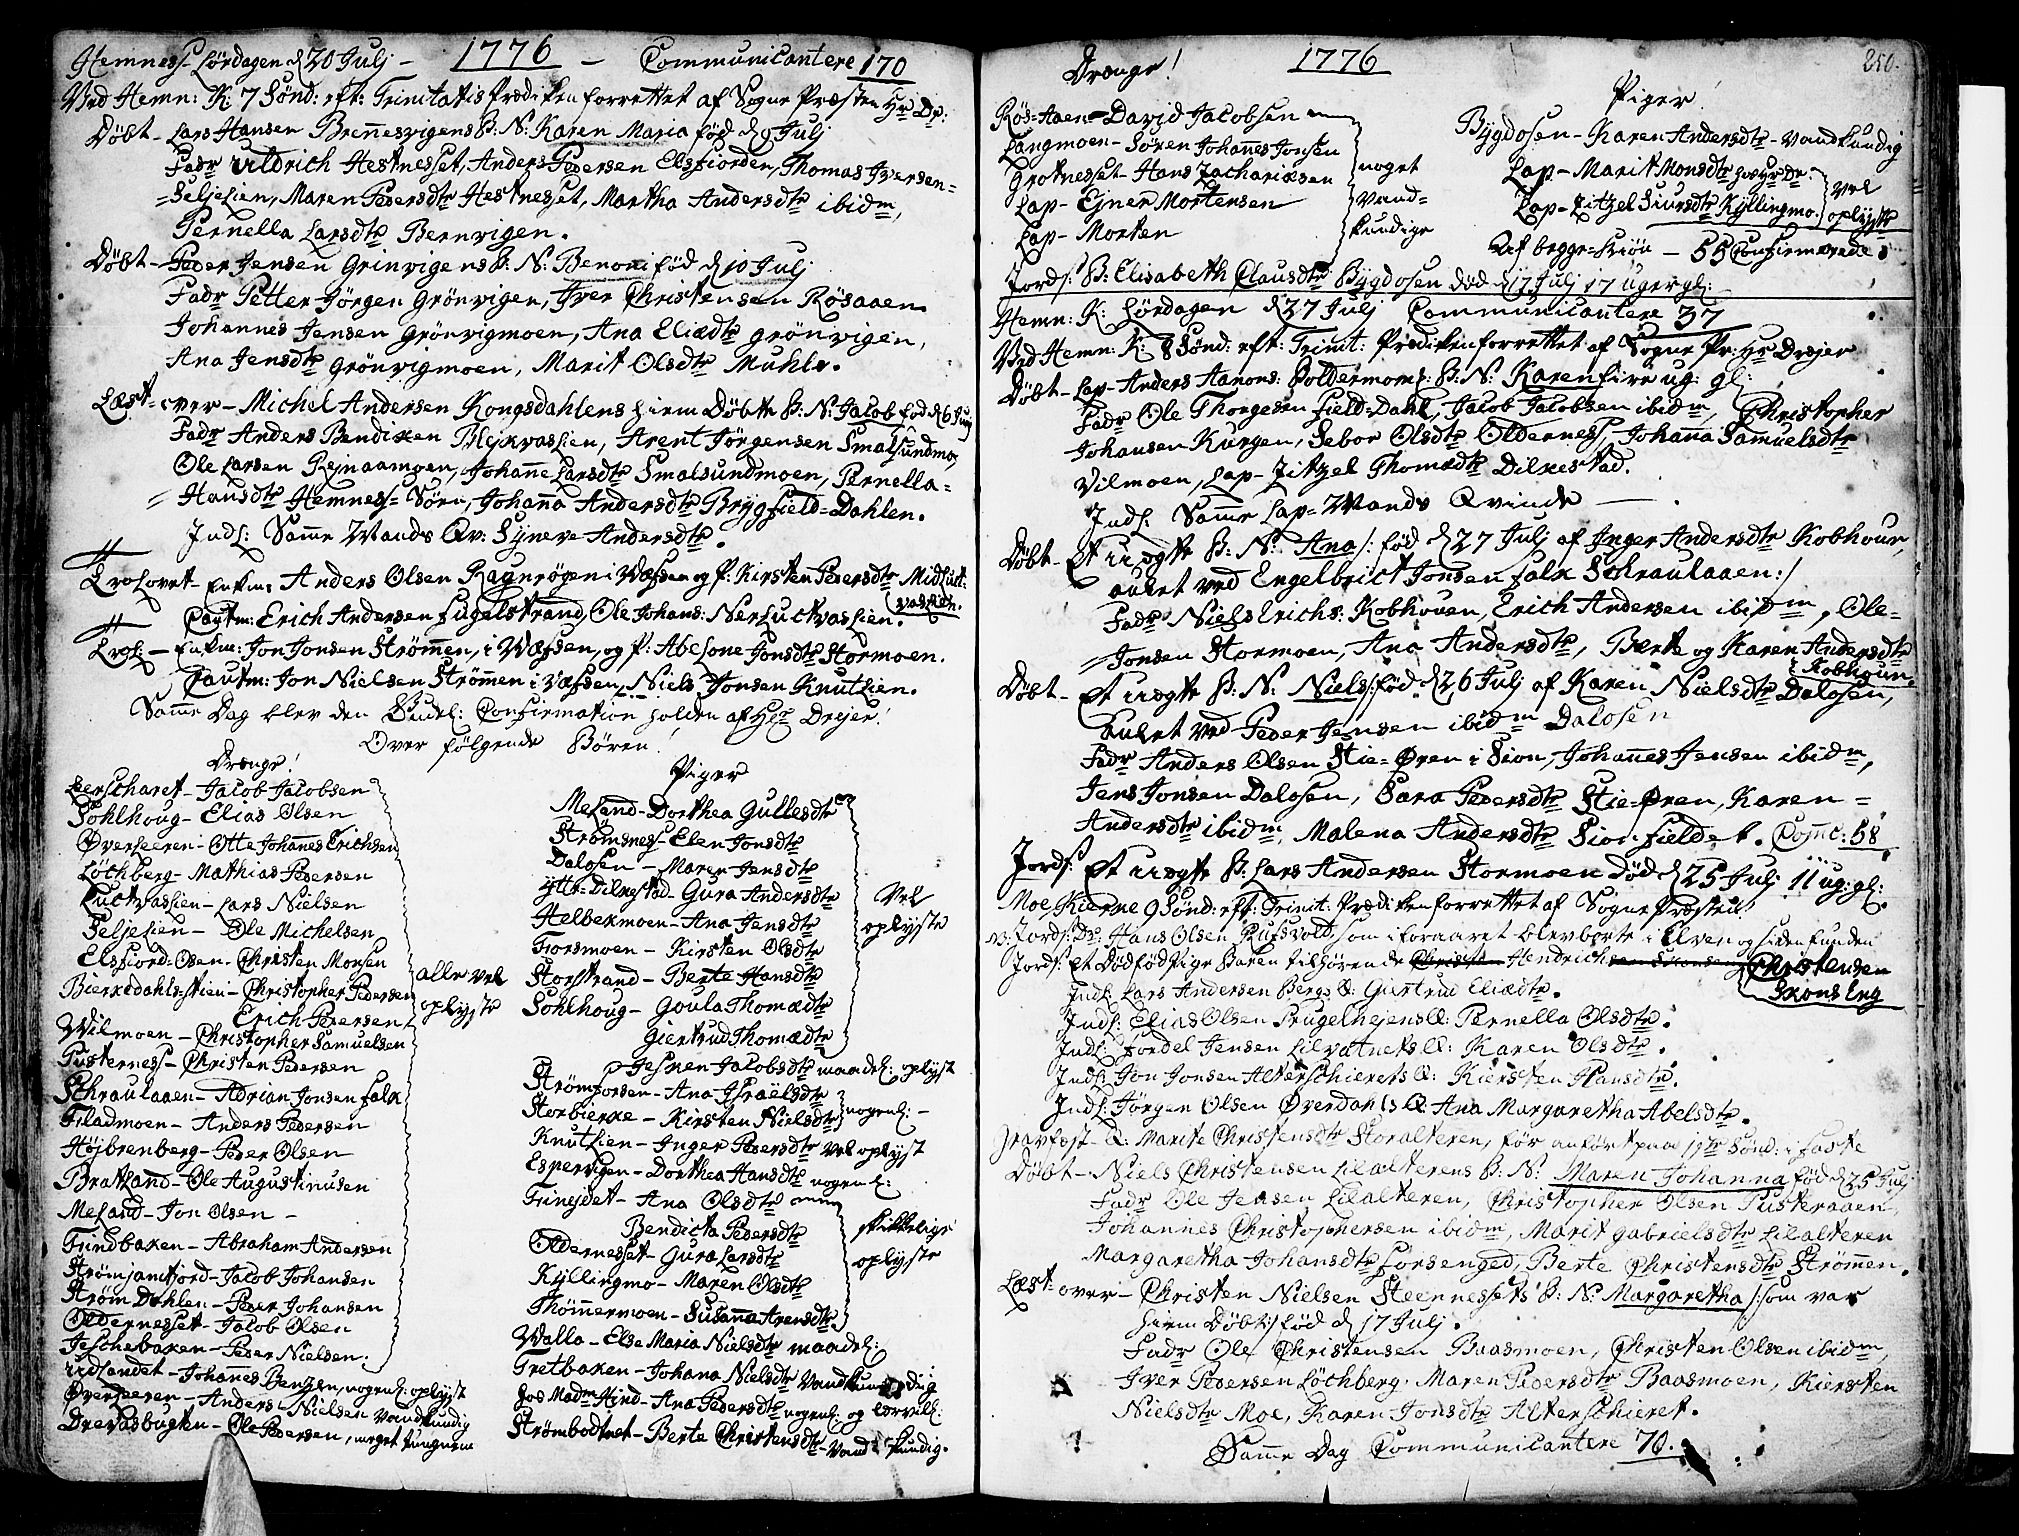 Hemness Lørdagen d 20 Julj – 1776 – Communicantere 170
Ved Hemn: K: 7 Sønd: eft: Trinitatis Prædiken forrettet af Sogne Præsten Hr Dr:
Døbt – Lars Hansen Brennesvigens B: N: Karen Maria fød d 9 Julj
Fadr Uldrich Hestnesset, Anders Pedersen Elsfiorden, Thomas Iversen=
=Seljelien, Maren Pedersdtr Hestnesset, Martha Andersdtr ibidm,
Pernella Larsdtr Bernvigen.
Døbt – Peder Jensen Grinvigens B: N: Benoni fød d 10 Julj
Fadr Petter Jørgen Grönvigen, Iver Christensen Rösaaen
Johannes Jensen Grönvigmoen, Ana Eliædtr Grönvigen,
Ana Jensdtr Grönvigmoen, Marit Olsdtr Muhle.
Læst= over – Michel Andersen Kongsdahlens hiem Døbte B: N: Jacob fød d 6 Junj
Fadr Anders Bendixen Blejkvaslien, Arent Jörgensen Smalsundmo,
Ole Larsen Rejnaamoen, Johanne Larsdtr Smalsundmoen, Pernella=
= Hansdtr Hemness= Sörn, Johanna Andersdtr Brygfield=Dahlen.
Indl: Samme Mands Qv: Synneve Andersdtr.
Trolovet – Enkm: Anders Olsen Ragnrögen i Wefsen og P: Kirsten Pedersdtr Midluct:
vaslien.
Cautm: Erich Andersen Fugelstrand, Ole Johans: Nerluctvaslien.
Trol: – Enkm: Jon Jonsen Strömmen, i Wefsen, og P: Abelone Jonsdtr Stormoen.
Cautm: Jon Nielsen Strömen i Vefsen, Niels Jonsen Knutlien.
Samme Dag blev den Confirmation holden af Hr Drejer!
Over følgende Børen!
Drenge!
Leerscharet – Jacob Jacobsen
Sohlhoug – Elias Olsen
Øverleeren – Otte Johannes Erichsen
Löchberg – Mathias Pedersen
Luctvaslien – Lars Nielsen
Seljelien – Ole Michelsen
Elsfiord=Osen – Christen Monsen
Bierkedahls=stien – Christopher Pedersen
Erich Pedersen
Wilmoen – Christopher Samuelsen
Pusterness – Christen Pedersen
Schraulaaen – Adrian Jonsen Falk
Filadmoen – Anders Pedersen
Højbrenberg – Peder Olsen
Bratland – Ole Augustinusen
Mesand – Jon Olsen –
Trindbaken – Abraham Andersen
Strømjamtjord – Jacob Johansen
Strøm Dahlen – Peder Johansen
Oldernesset – Jacob Olsen
Jeschebaken – Peder Nielsen
alle vel
oplyste
Uidlandet – Johannes Benzen, nogenl: oplyst
Øverleeren – Anders Nielsen Vandkundig
Drevasbugten – Ole Pedersen, meget
Piger
Mesand – Dorthea Gullesdtr
Strömsness – Elen Jonsdtr
Dalosen – Maren Jensdtr
Ytte=Dilnestad – Gura Andersdtr
Helbekmoen – Ana Jensdtr
Forsmoen – Kirsten Olsdtr
Storstrand – Berte Hansdtr
Sohlhoug – Goula Thomædtr
Giertrud Thomædtr
Vel
oplyste
Jesnen Jacobsdtr maadel: oplyst
Strømforsen – Ana Israëlsdtr
Storbierke – Kirsten Nielsdtr nogenl: –
Knutlien – Inger Pedersdtr vel oplyst
Espervigen – Dorthea Hansdtr nogenl:
Trinejdet – Ana Olsdtr
Bendicta Pedersdtr
Oldernesset – Gura Larsdtr
Kyllingmo – Maren Olsdtr
Thömmermoen – Susanna Arensdtr
skikkelige
oplyste
Walla – Else Maria Nielsdtr maadel:
Gretbaken – Johana Nielsdtr Vandkundig
hos Madm Hind – Ana Pedersdtr nogenl: og
Strømbodtnet – Berte Christensdtr – Vand=kundig.
Drenge! 1776 250.
Piger!
Rös=Aaen – David Jacobsen
Langmoen – Sören Johannes Jonsen
Grotnesset – Hans Zachariæsen
Lap – Ejner Mortensen
Lap – Morten
noget
Vand=
kundige
Bygdosen – Karen Andersdtr – Vandkundig
Lap – Marit Monsdtr hos Hr Dr:
Lap – Zitzel Siursdtr Kyllingmo.
vel
oplyste
Af begge=Kiøn – 55 Confirmerede.
Jords: B: Elisabeth Clausdtr Bygdosen død d 17 Julj 17 uger gl:
Hemn: K: Lørdagen d 27 Julj Communicantere 37
Ved Hemn: K: 8 Sønd: eft: Trinit: Prædiken forrettet af Sogne Pr: Hr Drejer
Døbt – Lap – Anders Aarons: Boldermoms: B: N: Karen fire ug: gl:
Fadr Ole Thorgesen Field=Dahl, Jacob Jacobsen ibidm, Christopher
Johansen Kurgen, Sebor Olsdtr Olderness, Johanna Samuelsdtr
Vilmoen, Lap – Zitzel Thomædtr Dilkestad.
Indl: Samme Lap=Mands Qvinde –
Døbt – Et uægte B: N: Ana /: fød d 27 Julj af Inger Andersdtr Kobhoug,
aulet ved Engelbrict Jonsen Falk Schraulaaen :/
Fadr Niels Erichs: Kobhouen, Erich Andersen ibidm, Ole=
=Jonsen Stormoen, Ana Andersdtr, Berte og Karen Andersdtr
i Kobhoun.
Døbt – Et uægte B: N: Niels fød d 26 Julj af Karen Nielsdtr Dalosen,
aulet ved Peder Jensen ibidm Dalosen
Fadr Anders Olsen Stie=Øren i Sion, Johannes Jensen ibidm,
Jens Jonsen Dalosen, Sara Pedersdtr Stie=Øren, Karen=
Andersdtr ibidm, Malena Andersdtr Sionfieldet. Comc: 58
Jords: Et uægte B: Lars Andersen Stormoen Død d 25 Julj 11 ug: gl:
Moe Kierne 9 Sønd: eft: Trinit: Prædiken forrettet af Sogne Præsten!
Jords: Dr: Hans Olsen Rusvold som i foraaret blev borte i Elven og siden funden
Jords: Et Dødfød Pige Baren tilhørende Hendrich Christensen
Skons Eng
Indl: Lars Andersen Bergs Q: Giertrud Eliædtr.
Indl: Elias Olsen Frugelhejens Q: Pernella Olsdtr.
Indl: Fordel Jensen Lilvatnets Q: Karen Olsdtr.
Indl: Jon Jonsen Alterschierets Q: Kiersten Hansdtr.
Indl: Jörgen Olsen Øverdahls Q: Ana Margaretha Abelsdtr.
Gravfæst – Q: Marite Christensdtr Storalteren, før anført paa 1ste Sønd: i faste
Døbt – Niels Christensen Lilalterens B: N: Maren Johanna fød d 25 Julj
Fadr Ole Jensen Lilalteren, Christopher Olsen Pusteraaen,
Johannes Christophersen ibidm, Marit Gabrielsdtr Lilalteren
Margaretha Johansdtr Forsenged, Berte Christensdtr Strömmen.
Læst: over – Christen Nielsen Steennessets B: N: Margaretha /: som var
hiem Døbt :/ fød d 17 Julj.
Fadr Ole Christensen Baasmoen, Christen Olsen ibidm,
Iver Pedersen Löchberg. Maren Pedersdtr Baasmoen, Kiersten
Nielsdtr Moe, Karen Jonsdtr Alterschieret.
Samme Dag Communicantere 70.